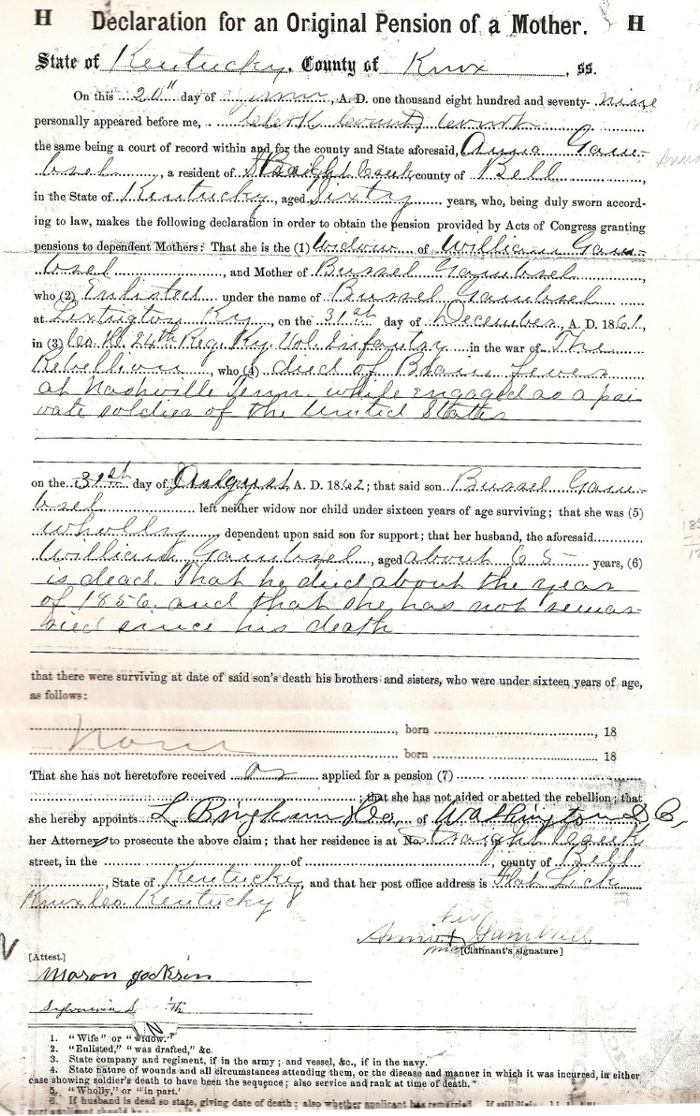 H Declaration for an Original Pension of a Mother. H
State of Kentucky, County of Knox, SS.
On this 20th day of, A. D. one thousand eight hundred and seventy-nine
personally appeared before me, Clerk County Court
the same being a court of record within and for the county and State aforesaid, Anna Gam-
bsel, a resident of Straight Creek county of Bell
in the State of Kentucky, aged Sixty years, who, being duly sworn accord-
ing to law, makes the following declaration in order to obtain the pension provided by Acts of Congress granting
pensions to dependent Mothers: That she is the (1) Widow of William Gam-
bsel, and Mother of Bussel Gambsel
who (2) Enlisted under the name of Bussel Gambsel
at Lexington Ky, on the 31st day of December, A. D. 1861,
in (3) Co. 24th Reg. Ky. Vol. Infantry in the war of The
Rebellion, who (4) died of Brain fever
at Nashville Tenn. while engaged as a pri-
vate soldier of the United States
on the 31st day of August, A. D. 1862; that said son Bussel Gam-
bsel left neither widow nor child under sixteen years of age surviving; that she was (5)
wholly dependent upon said son for support; that her husband, the aforesaid
William Gambsel, aged about 65 years, (6)
is dead. That he died about the year
of 1856. and that she has not remar-
ried since his death
that there were surviving at date of said son's death his brothers and sisters, who were under sixteen years of age,
as follows:
, born , 18
None born 18
That she has not heretofore received or applied for a pension (7)
; that she has not aided or abetted the rebellion; that
she hereby appoints L. Bingham & Co. of Washington D C,
her Attorney to prosecute the above claim; that her residence is at No. Straight Creek
street, in the of , county of Bell
, State of Kentucky, and that her post office address is Flat Lick
Knox Co. Kentucky
her
Anna X Gambsel
mark [Claimant's signature]
[Attest.]
Mason Jackson
Sylvania S.
1. "Wife" or "widow."
2. "Enlisted," "was drafted," &c.
3. State company and regiment, if in the army; and vessel, &c., if in the navy.
4. State nature of wounds and all circumstances attending them, or the disease and manner in which it was incurred, in either
case showing soldier's death to have been the sequence; also service and rank at time of death.
5. "Wholly," or "in part."
6. If husband is dead so state, giving date of death; also whether applicant has remarried.